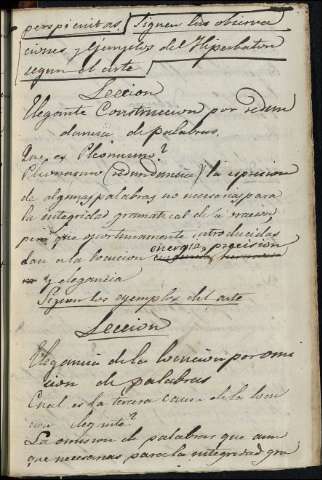 perspicuitas / Siguen las observa
ciones y Ejemplos del Hiperbaton
segun el arte
Leccion
Elegante Construccion por redun
dancia de palabras.
Que es Pleonasmo?
Pleonasmo (redundancia) la espresion
de algunas palabras no necesarias para
la integridad gramatical de la oracion
pero que oportunamente introducidas
dan a la locucion energia, precision
y elegancia
Siguen los ejemplos del arte
Leccion
Elegancia de la locucion por omi
sion de palabras
Cual es la tercera causa de la locu
cion elegante?
La omision de palabras que aun
que necesarias para la integridad gra